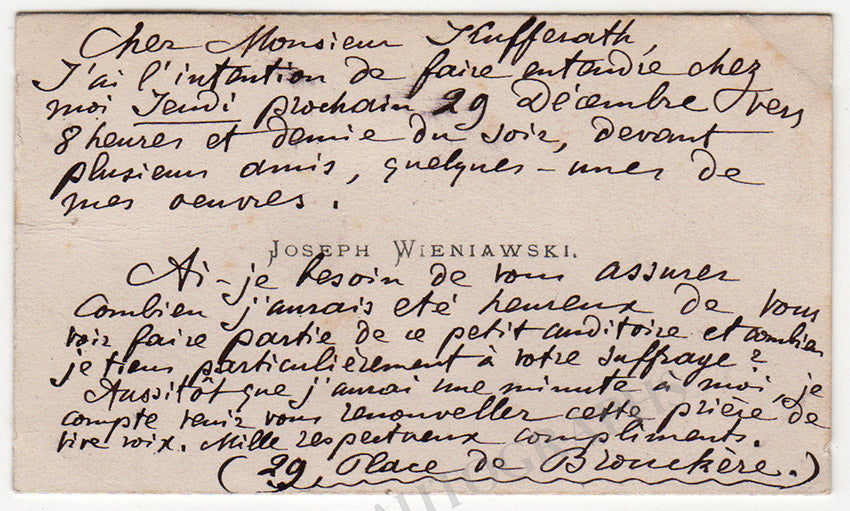 Cher Monsieur Kufferath,
J'ai l'intention de faire entendre chez
moi Jeudi prochain 29 Décembre vers
8 heures et demie du soir, devant
plusieurs amis, quelques-unes de
mes oeuvres.
JOSEPH WIENIAWSKI.
Ai-je besoin de vous assurer
combien j'aurais eté heureux de vous
voir faire partie de ce petit auditoire et combien
je tiens particulièrement à votre suffrage?
Aussitôt que j'aurai une minute à moi, je
compte venir vous renouveller cette prière de
vive voix. Mille respectueux compliments.
(29, Place de Brouckère.)